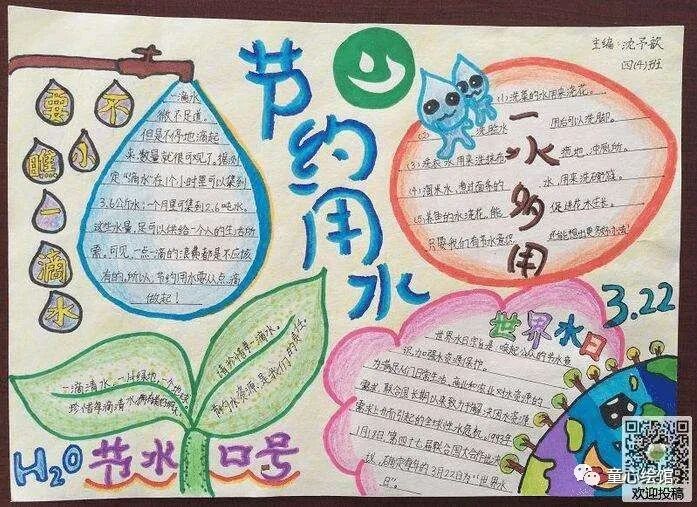 主编：沈予歆
四(4)班
节约用水
不要
小瞧
一
滴
水
一滴水
微不足道。
但是不停地滴起
来，数量就很可观了。据测
定“滴水”在1个小时里可以集到
3.6公斤水；一个月里可集到2.6吨水。
这些水量，足可以供给一个人的生活所
需。可见，一点一滴的浪费都是不应该
有的。所以，节约用水要从点滴
做起！
一水多用
(1) 洗菜的水用来浇花。
(2) 洗脸水 用后可以洗脚。
(3) 洗衣水用来洗拖布 拖地、冲厕所。
(4) 淘米水 水，用来洗碗筷。
水浇花，能 促进花木生长。
只要我们有节水意识
3.22
世界水日
世界水日宗旨是，唤起公众的节水意
识，加强水资源保护。
为满足人们日常生活、商业和农业对水资源的
需求，联合国长期以来致力于解决因水资源
需求上升而引起的全球性水危机。1993年
1月18日，第四十七届联合国大会作出决
议，确定每年的3月22日为“世界水
日”。
一滴清水，一片绿地，一个地球
珍惜每滴清水，
请珍惜每一滴水。
节约水资源，是我们的责任。
H₂O 节水口号
童心绘馆
欢迎投稿